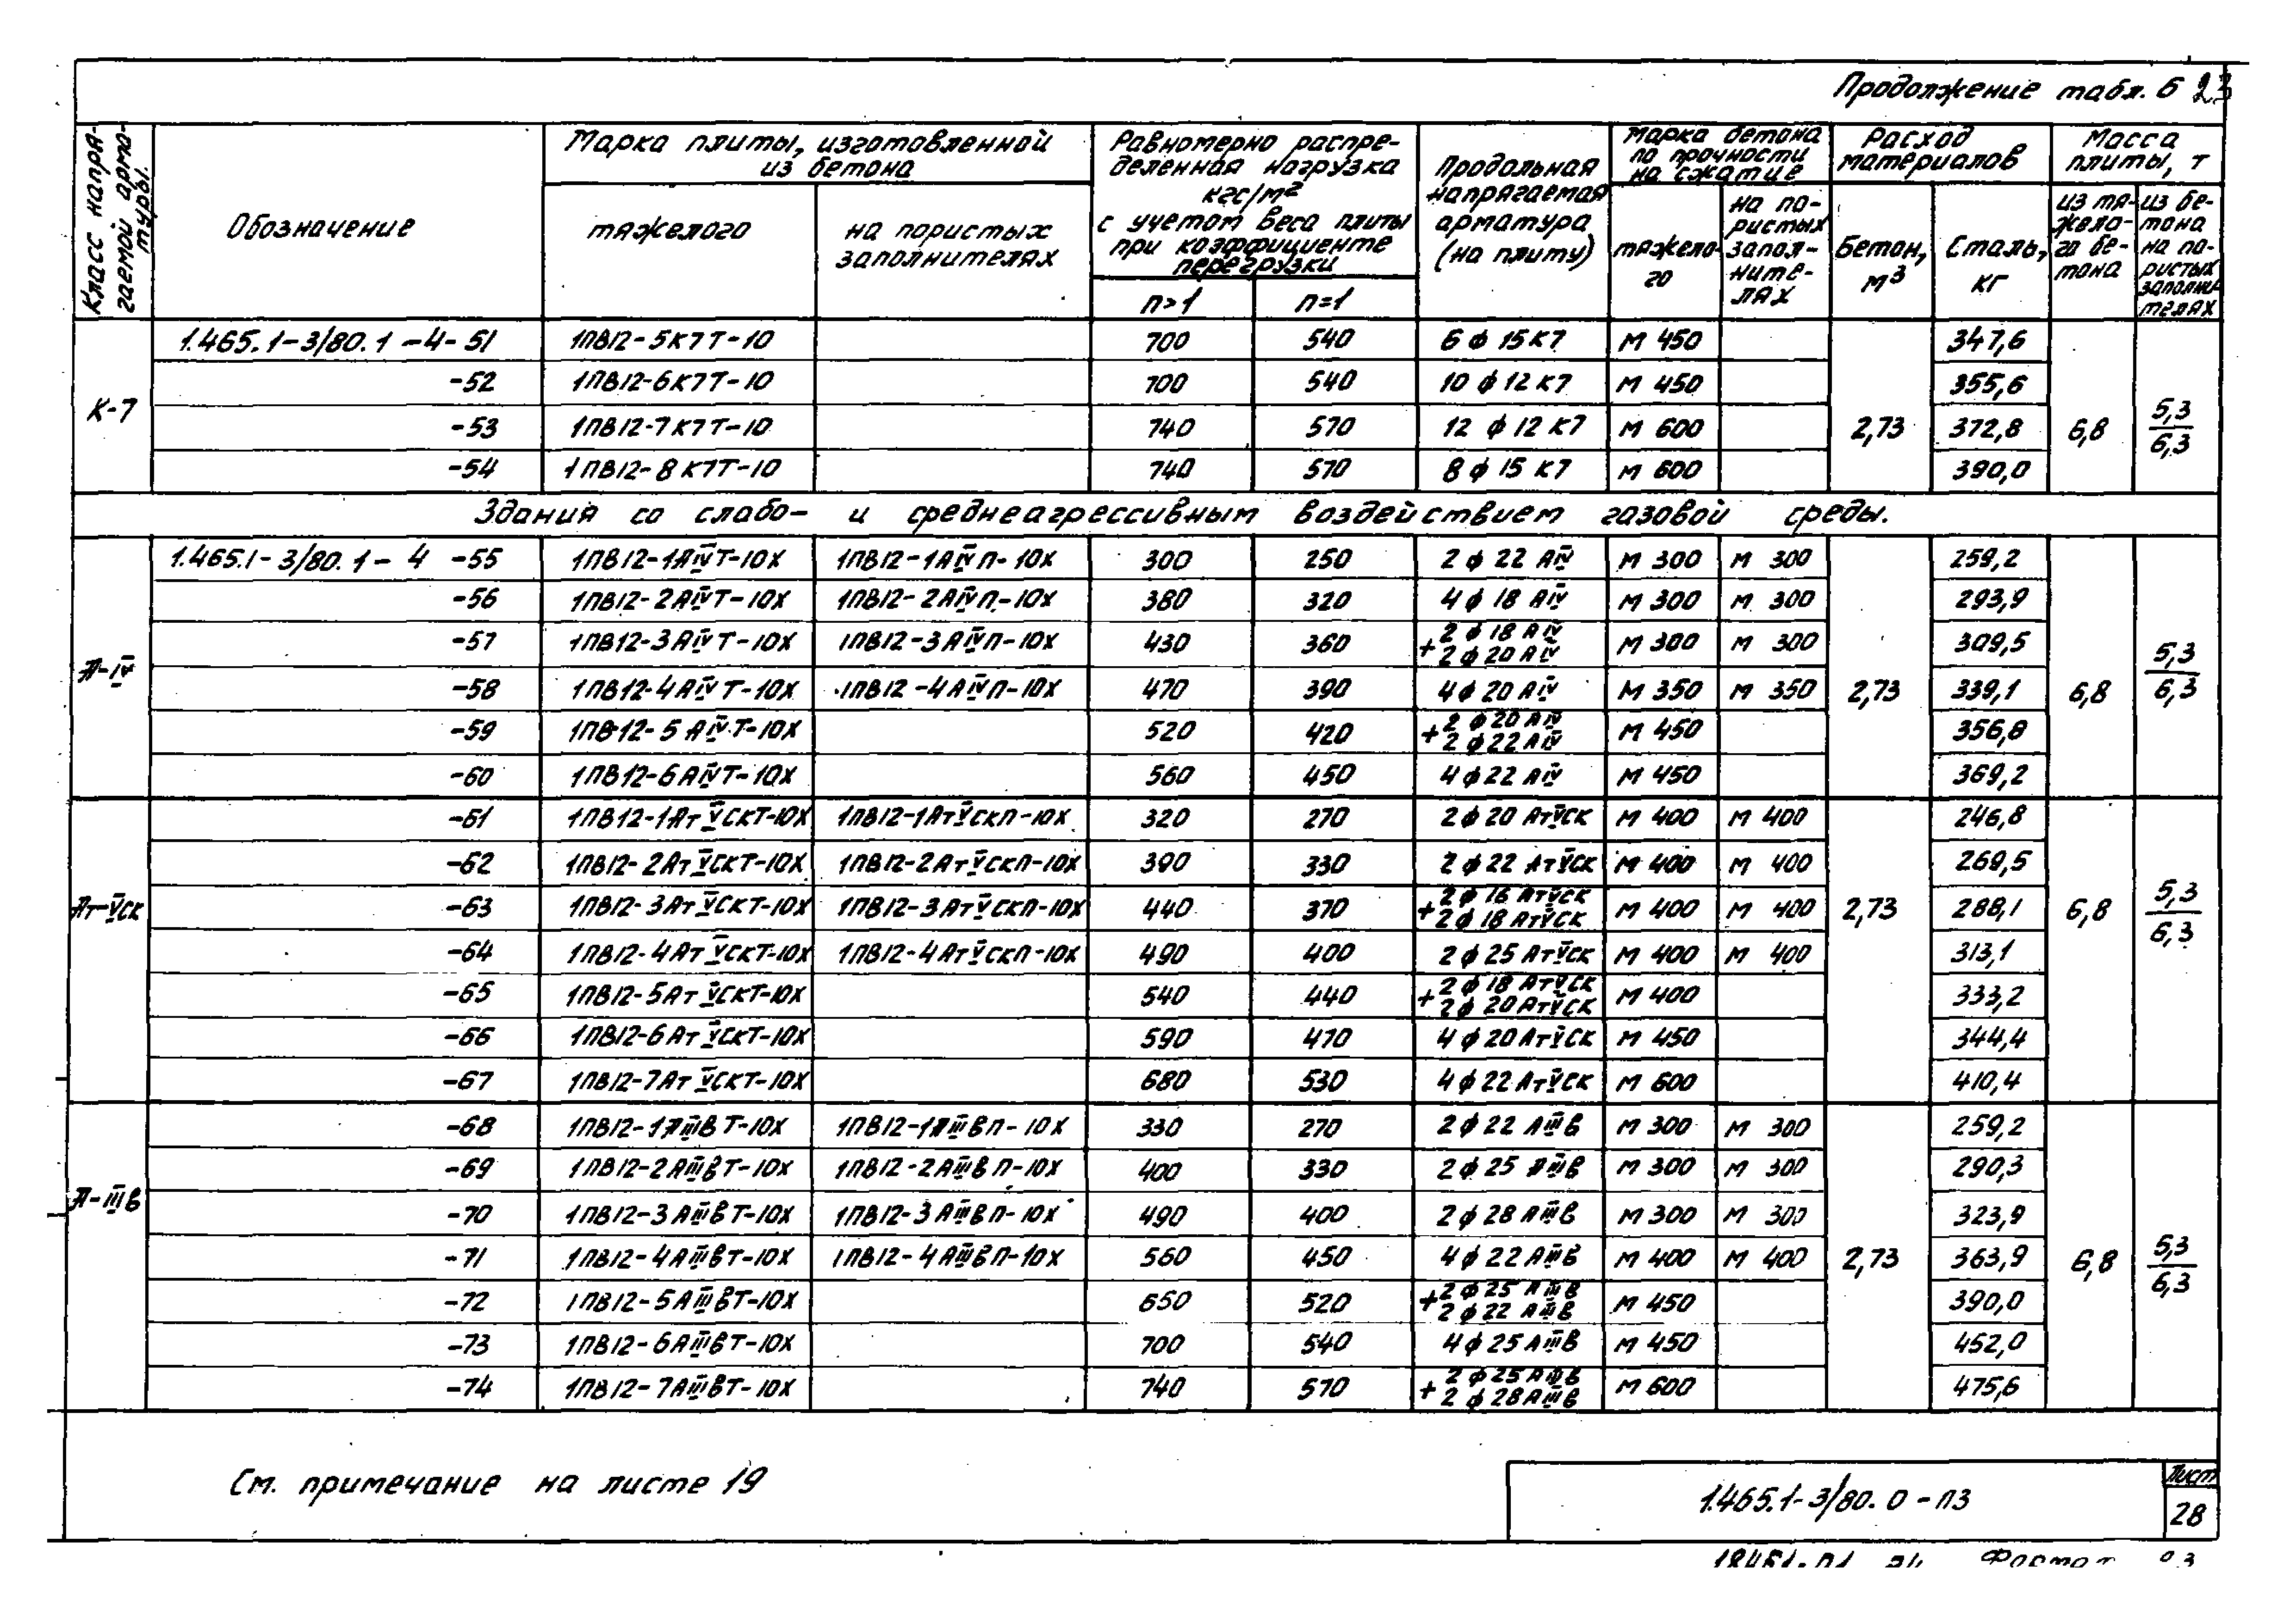 Продолжение табл. 6 23
Класс напрягаемой арматуры.
Обозначение
Марка плиты, изготовленной из бетона
тяжелого
на пористых заполнителях
Равномерно распределенная нагрузка кгс/м² с учетом веса плиты при коэффициенте перегрузки
n>1
n=1
Продольная напрягаемая арматура (на плиту)
Марка бетона по прочности на сжатие
тяжелого
на пористых заполнителях
Расход материалов
Бетон, м³
Сталь, кг
Масса плиты, т
из тяжелого бетона
из бетона на пористых заполнителях
К-7
1.465.1-3/80.1-4-51 1ПВ12-5К7Т-10 700 540 6ф15К7 М 450 347,6
-52 1ПВ12-6К7Т-10 700 540 10ф12К7 М 450 355,6
-53 1ПВ12-7К7Т-10 740 570 12ф12К7 М 600 2,73 372,8 6,8 5,3/6,3
-54 1ПВ12-8К7Т-10 740 570 8ф15К7 М 600 390,0
Здания со слабо- и среднеагрессивным воздействием газовой среды.
А-IV
1.465.1-3/80.1-4 -55 1ПВ12-1АIVТ-10Х 1ПВ12-1АIVП-10Х 300 250 2ф22АIV М 300 М 300 259,2
-56 1ПВ12-2АIVТ-10Х 1ПВ12-2АIVП-10Х 380 320 4ф18АIV М 300 М 300 293,9
-57 1ПВ12-3АIVТ-10Х 1ПВ12-3АIVП-10Х 430 360 2ф18АIV + 2ф20АIV М 300 М 300 309,5
-58 1ПВ12-4АIVТ-10Х 1ПВ12-4АIVП-10Х 470 390 4ф20АIV М 350 М 350 2,73 339,1 6,8 5,3/6,3
-59 1ПВ12-5АIVТ-10Х 520 420 2ф20АIV + 2ф22АIV М 450 356,8
-60 1ПВ12-6АIVТ-10Х 560 450 4ф22АIV М 450 369,2
Ат-VСК
-61 1ПВ12-1АтVСКТ-10Х 1ПВ12-1АтVСКП-10Х 320 270 2ф20АтVСК М 400 М 400 246,8
-62 1ПВ12-2АтVСКТ-10Х 1ПВ12-2АтVСКП-10Х 390 330 2ф22АтVСК М 400 М 400 269,5
-63 1ПВ12-3АтVСКТ-10Х 1ПВ12-3АтVСКП-10Х 440 370 2ф16АтVСК + 2ф18АтVСК М 400 М 400 2,73 288,1 6,8 5,3/6,3
-64 1ПВ12-4АтVСКТ-10Х 1ПВ12-4АтVСКП-10Х 490 400 2ф25АтVСК М 400 М 400 313,1
-65 1ПВ12-5АтVСКТ-10Х 540 440 2ф18АтVСК + 2ф20АтVСК М 400 333,2
-66 1ПВ12-6АтVСКТ-10Х 590 470 4ф20АтVСК М 450 344,4
-67 1ПВ12-7АтVСКТ-10Х 680 530 4ф22АтVСК М 600 410,4
А-IIIв
-68 1ПВ12-1АIIIвТ-10Х 1ПВ12-1АIIIвП-10Х 330 270 2ф22АIIIв М 300 М 300 259,2
-69 1ПВ12-2АIIIвТ-10Х 1ПВ12-2АIIIвП-10Х 400 330 2ф25АIIIв М 300 М 300 290,3
-70 1ПВ12-3АIIIвТ-10Х 1ПВ12-3АIIIвП-10Х 490 400 2ф28АIIIв М 300 М 300 323,9
-71 1ПВ12-4АIIIвТ-10Х 1ПВ12-4АIIIвП-10Х 560 450 4ф22АIIIв М 400 М 400 2,73 363,9 6,8 5,3/6,3
-72 1ПВ12-5АIIIвТ-10Х 650 520 2ф25АIIIв + 2ф22АIIIв М 450 390,0
-73 1ПВ12-6АIIIвТ-10Х 700 540 4ф25АIIIв М 450 452,0
-74 1ПВ12-7АIIIвТ-10Х 740 570 2ф25АIIIв + 2ф28АIIIв М 600 475,6
См. примечание на листе 19
1.465.1-3/80.0-ПЗ
Лист
28
Формат